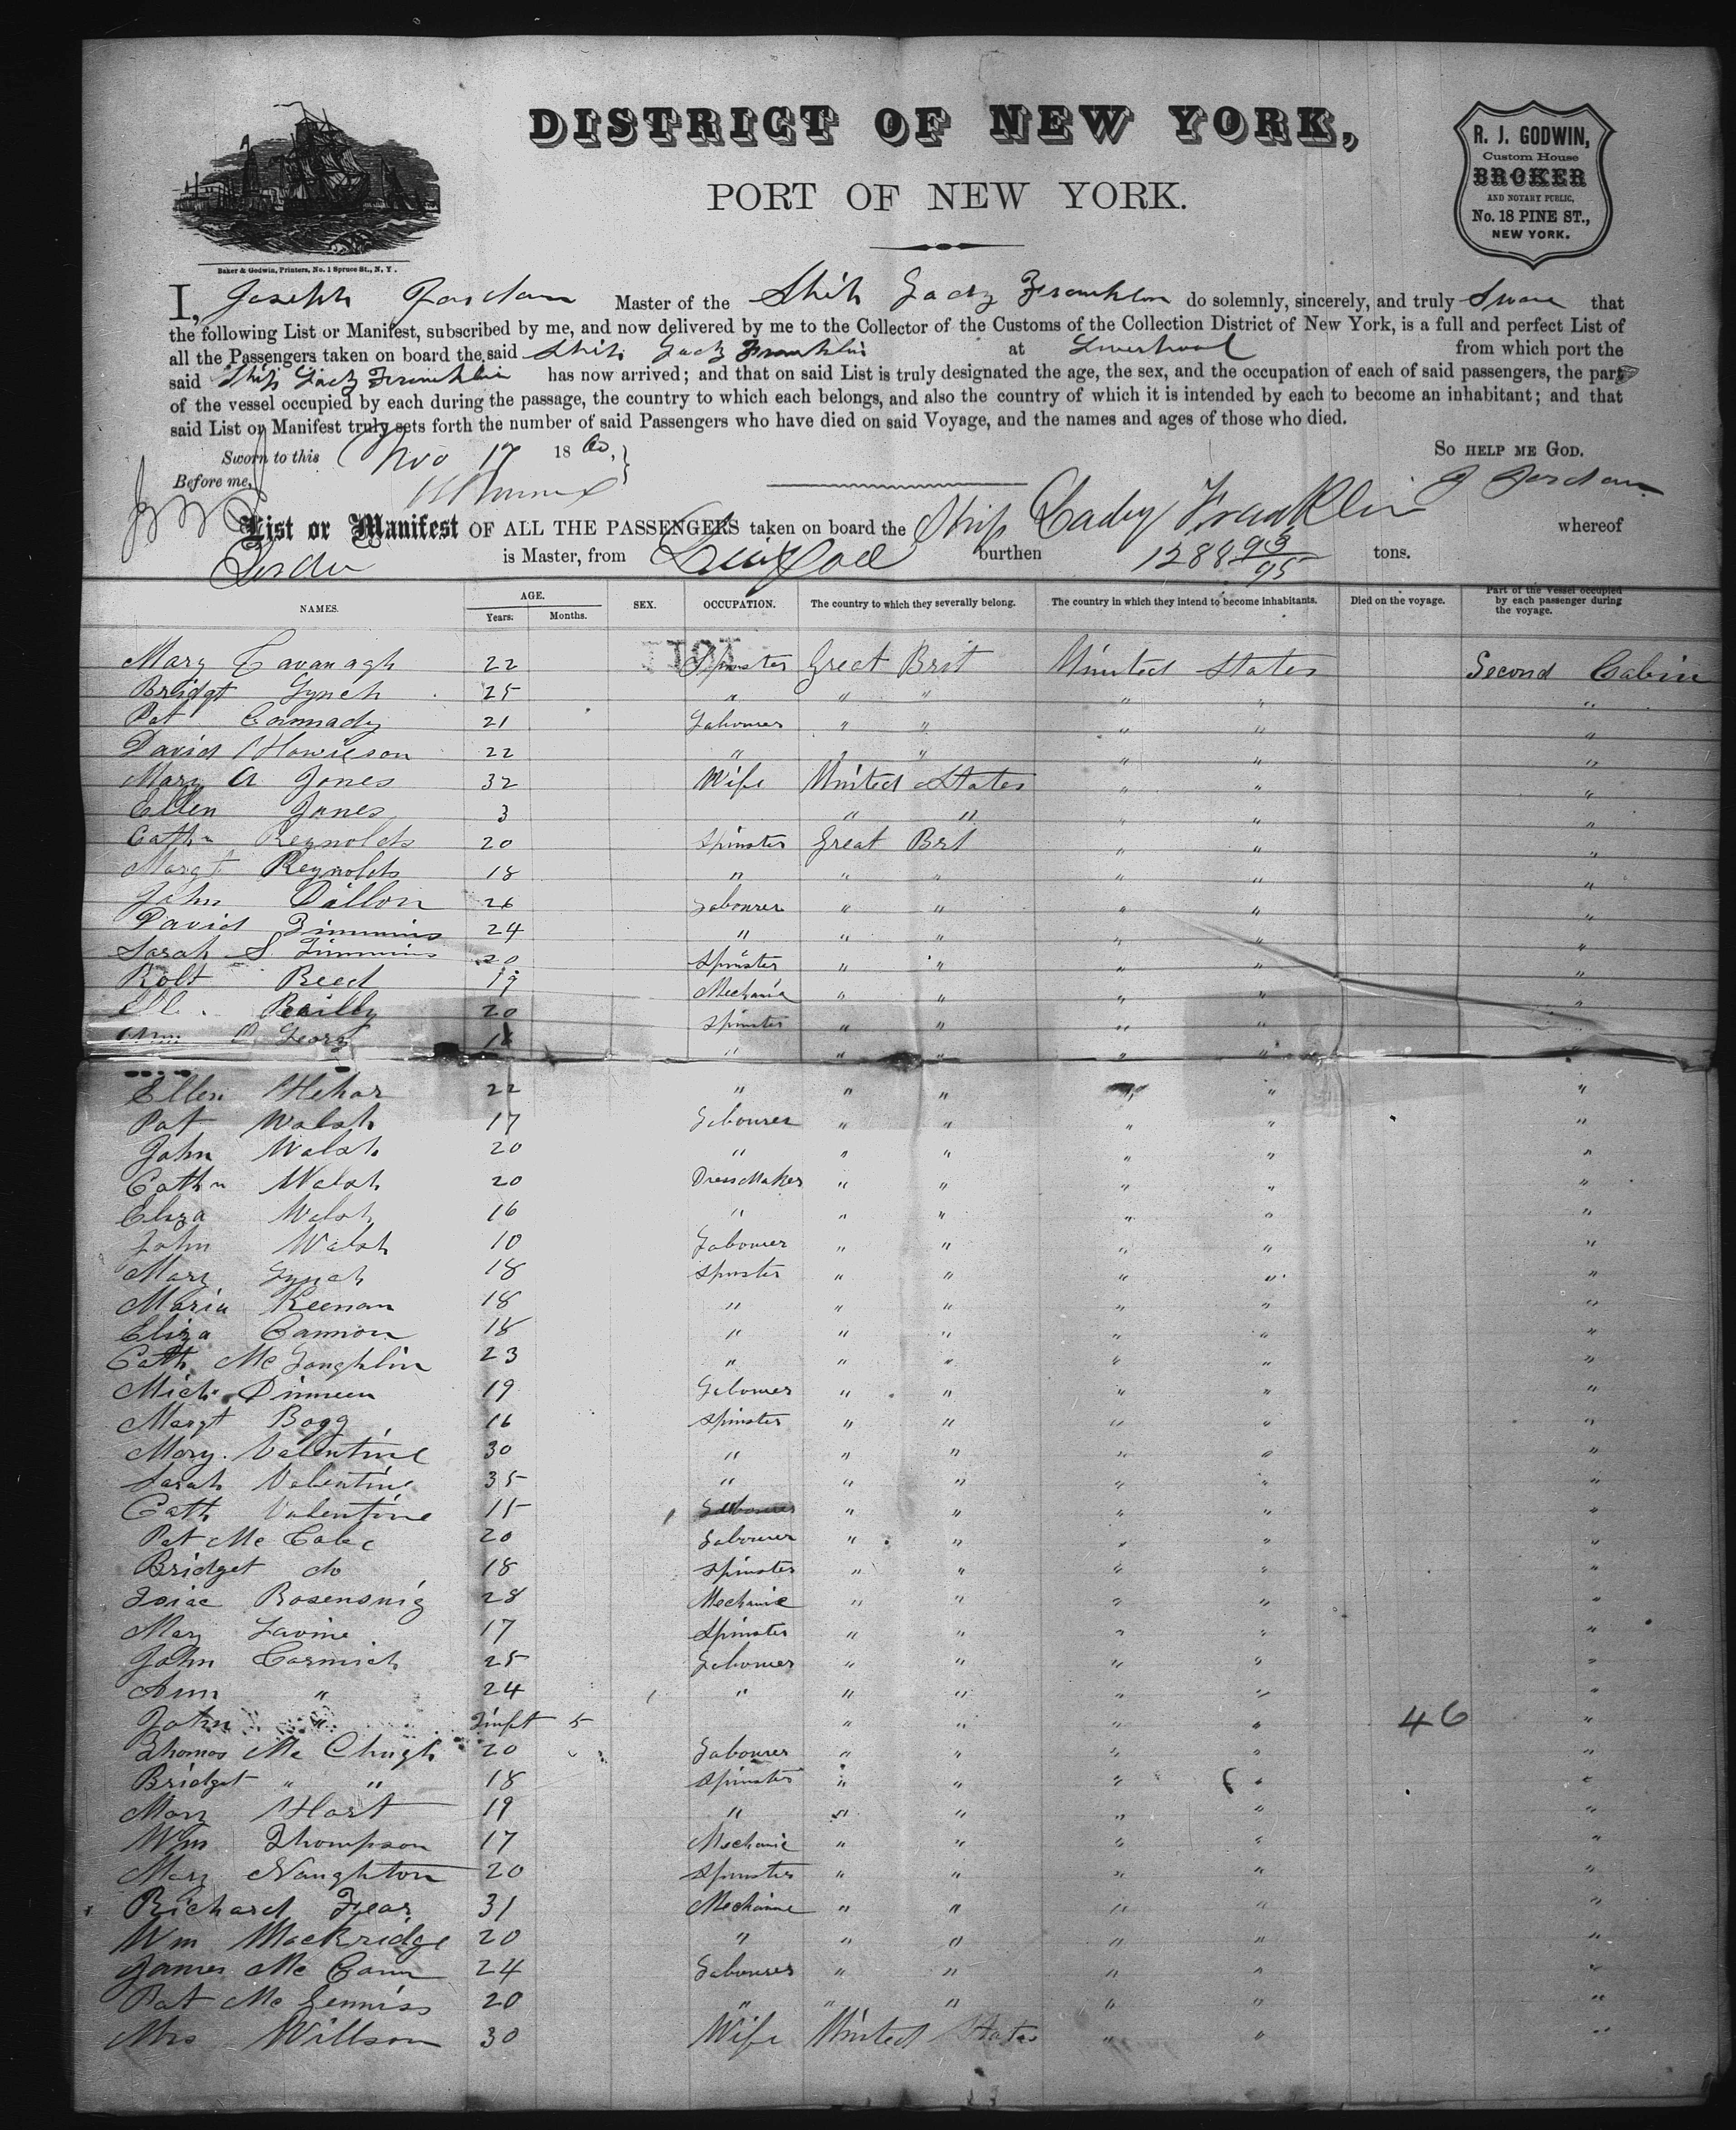 DISTRICT OF NEW YORK,
PORT OF NEW YORK.
R. J. GODWIN,
Custom House
BROKER
AND NOTARY PUBLIC,
No. 18 PINE ST.,
NEW YORK.
Baker & Godwin, Printers, No. 1 Spruce St., N. Y.
I, Joseph Jordan Master of the Ship Lady Franklin do solemnly, sincerely, and truly Swear that
the following List or Manifest, subscribed by me, and now delivered by me to the Collector of the Customs of the Collection District of New York, is a full and perfect List of
all the Passengers taken on board the said Ship Lady Franklin at Liverpool from which port the
said Ship Lady Franklin has now arrived; and that on said List is truly designated the age, the sex, and the occupation of each of said passengers, the part
of the vessel occupied by each during the passage, the country to which each belongs, and also the country of which it is intended by each to become an inhabitant; and that
said List or Manifest truly sets forth the number of said Passengers who have died on said Voyage, and the names and ages of those who died.
Sworn to this Nov 17 1860, SO HELP ME GOD.
Before me, J Jordan
List or Manifest OF ALL THE PASSENGERS taken on board the Ship Lady Franklin whereof
Jordan is Master, from Liverpool burthen 1288 93/95 tons.
NAMES. AGE. Years. Months. SEX. OCCUPATION. The country to which they severally belong. The country in which they intend to become inhabitants. Died on the voyage. Part of the vessel occupied by each passenger during the voyage.
Mary Cavanagh 22 Spinster Great Brit United States Second Cabin
Bridgt Lynch 25 " " " " " "
Pat Connady 21 Labourer " " " " "
David Howieson 22 " " " " " "
Mary A Jones 32 Wife United States " " "
Ellen Jones 3 " " " " "
Cathn Reynolds 20 Spinster Great Brit " " "
Margt Reynolds 18 " " " " " "
John Dillon 26 Labourer " " " " "
David Timmins 24 " " " " " "
Sarah S Timmins 20 Spinster " " " " "
Robt Reed 19 Mechanic " " " " "
Reilly 20 Spinster " " " " "
" " " " " "
Ellen Hehar 22 " " " " " "
Pat Walsh 17 Labourer " " " " "
John Walsh 20 " " " " " "
Cathn Walsh 20 DressMaker " " " " "
Eliza Walsh 16 " " " " " "
John Walsh 10 Labourer " " " " "
Mary Lynch 18 Spinster " " " " "
Maria Keenan 18 " " " " " "
Eliza Cannon 18 " " " " " "
Cath Mc Loughlin 23 " " " " " "
Mich. Dinneen 19 Labourer " " " " "
Margt Bogg 16 Spinster " " " " "
Mary Valentine 30 " " " " " "
Sarah Valentine 35 " " " " " "
Cath Valentine 15 " " " " "
Pat Mc Cabe 20 Labourer " " " " "
Bridget do 18 Spinster " " " " "
Isiac Rosensnig 28 Mechanic " " " " "
Mary Lavine 17 Spinster " " " " "
John Cormick 25 Labourer " " " " "
Ann " 24 " " " " " "
John " Inft 5 " " " " 46 "
Thomas Mc Chugh 20 Labourer " " " " "
Bridget " " 18 Spinster " " " " "
Mary Hart 19 " " " " " "
Wm Thompson 17 Mechanic " " " " "
Mary Naughton 20 Spinster " " " " "
Richard Fear 31 Mechanic " " " " "
Wm Mackridge 20 " " " " " "
James Mc Cann 24 Labourer " " " " "
Pat Mc Genniss 20 " " " " " "
Mrs Willson 30 Wife United States " " "